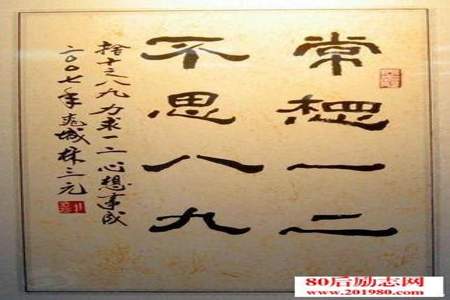 常想一二
不思八九
捨十之八九力求一二心想事成
二〇〇七年
林三元
80后励志网
www.201980.com